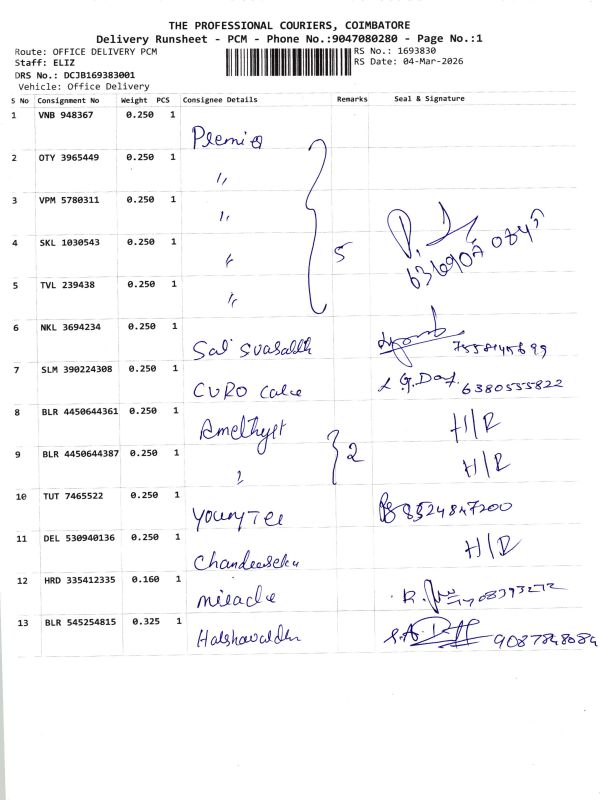 THE PROFESSIONAL COURIERS, COIMBATORE
Delivery Runsheet - PCM - Phone No.:9047080280 - Page No.:1
Route: OFFICE DELIVERY PCM
Staff: ELIZ
DRS No.: DCJB169383001
Vehicle: Office Delivery
RS No.: 1693830
RS Date: 04-Mar-2026
S No Consignment No Weight PCS Consignee Details Remarks Seal & Signature
1 VNB 948367 0.250 1
Premier
2 OTY 3965449 0.250 1
"
3 VPM 5780311 0.250 1
"
4 SKL 1030543 0.250 1
" 5
5 TVL 239438 0.250 1
"
6 NKL 3694234 0.250 1
Sai
7 SLM 390224308 0.250 1
CURO 6380555822
8 BLR 4450644361 0.250 1
Amethyst H/R
9 BLR 4450644387 0.250 1
2 H/R
10 TUT 7465522 0.250 1
8524847200
11 DEL 530940136 0.250 1
H/R
12 HRD 335412335 0.160 1
miracle
13 BLR 545254815 0.325 1
9087848084